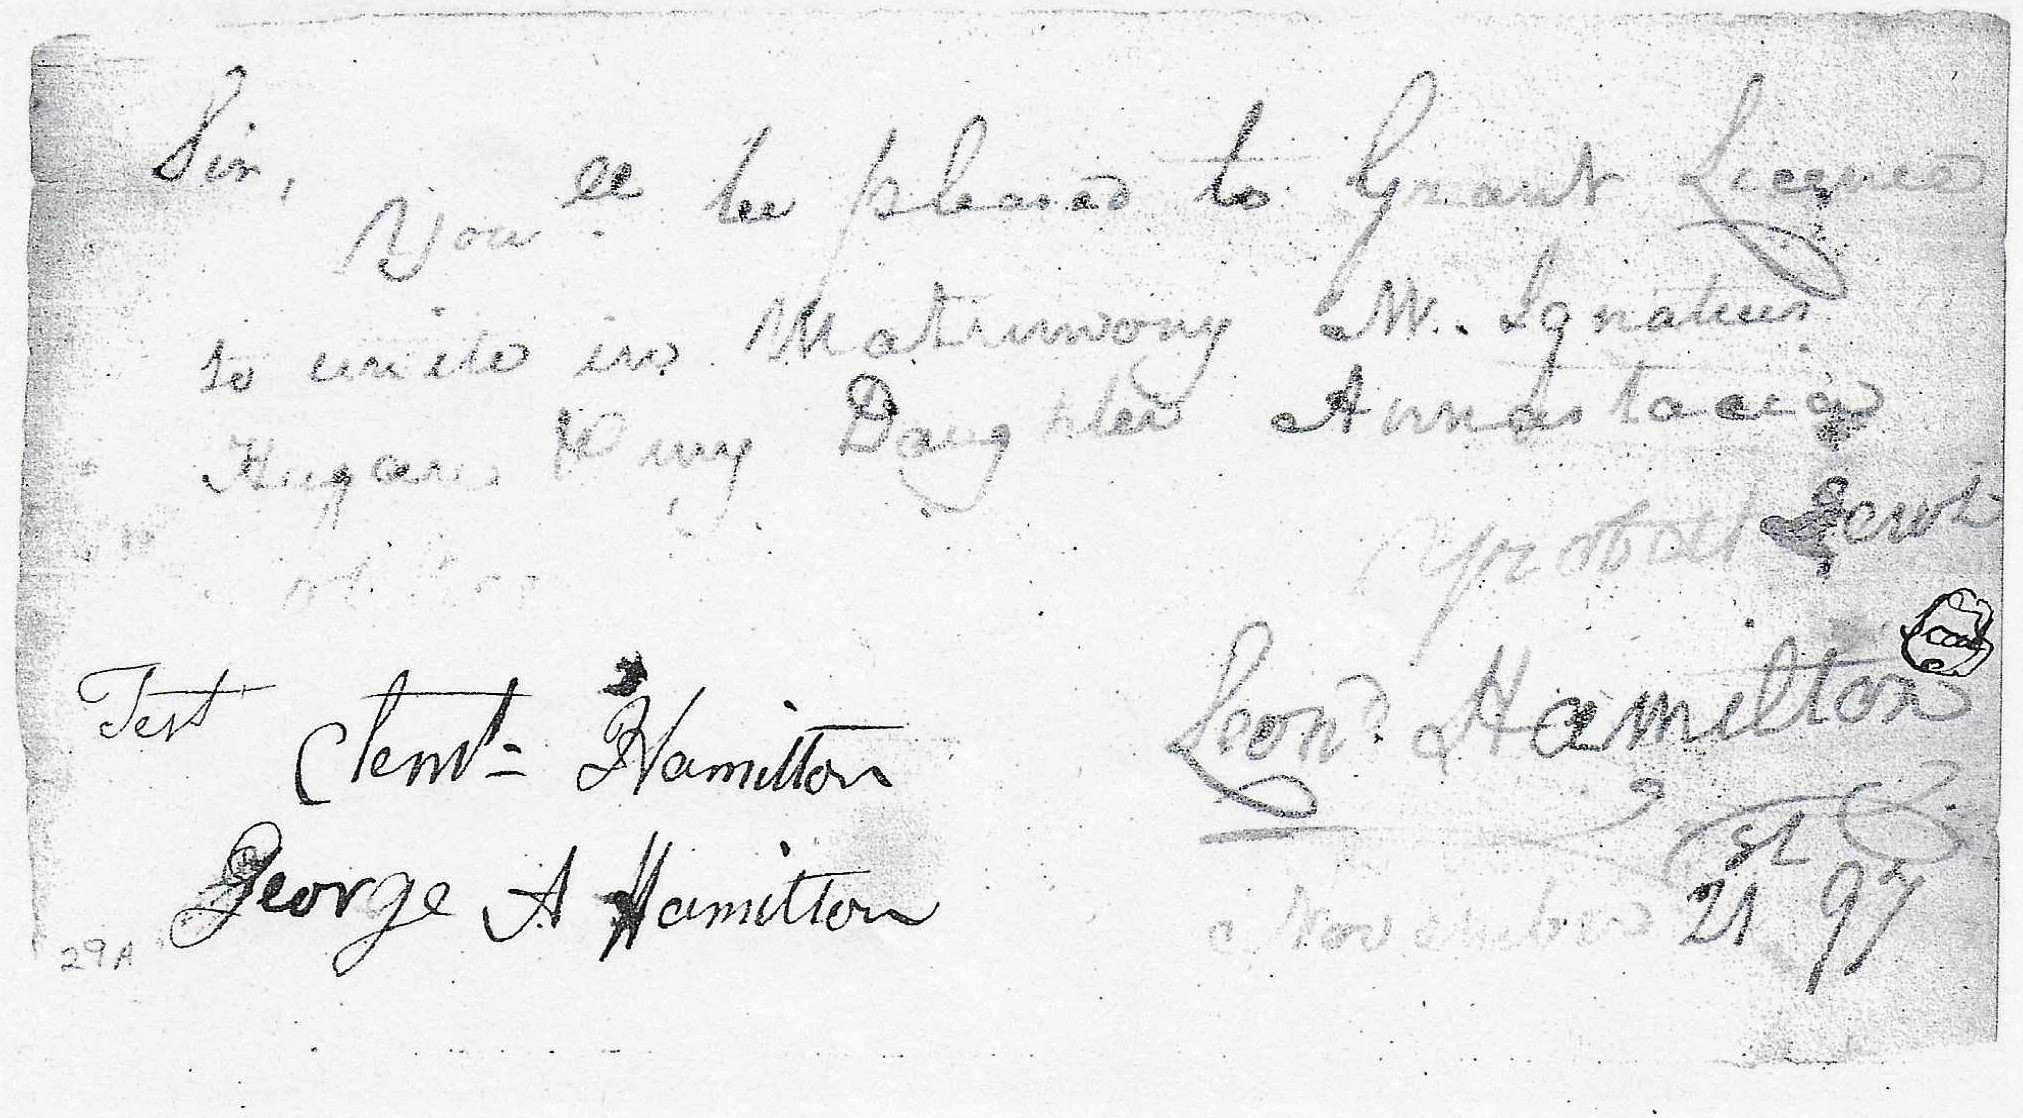 Sir,
You ll be pleased to Grant Licence
to unite in Matrimony Mr. Ignatius
Hagan & my Daughter Annastacia
Yr obdt Servt
Seal
Test Clemt= Hamilton Leond. Hamilton
George A Hamilton November 21st 97
29A